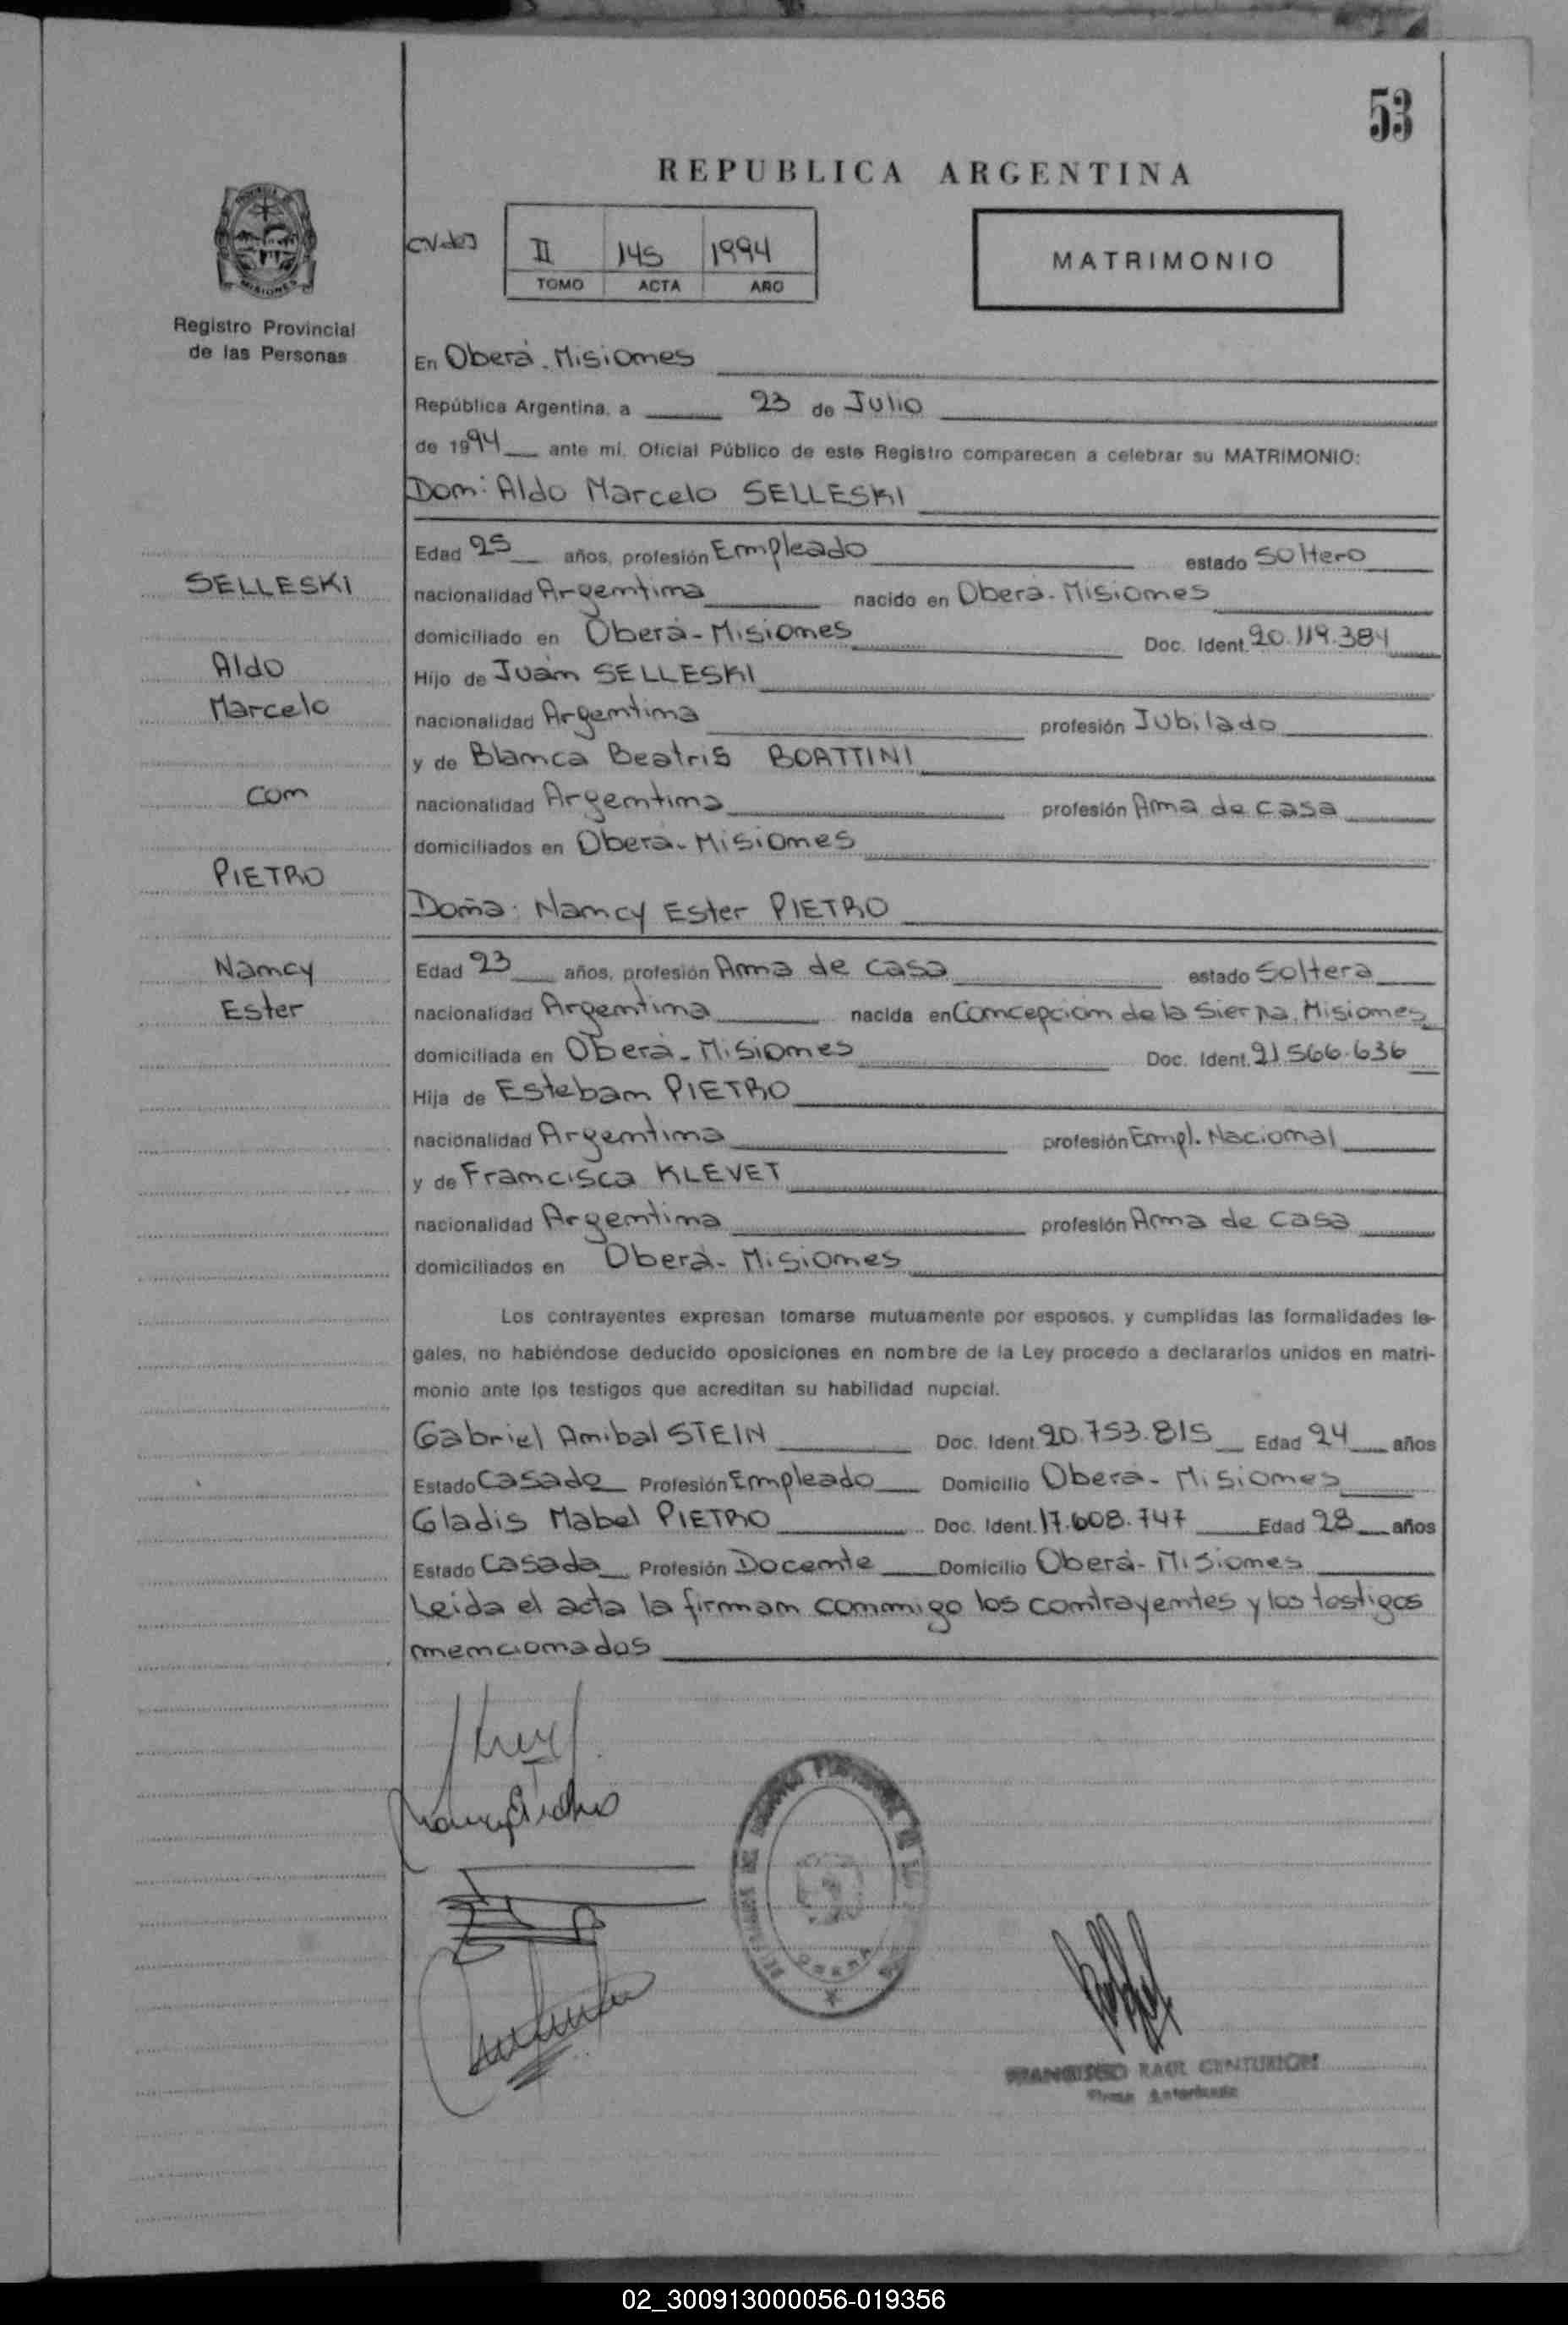 53
REPUBLICA ARGENTINA
II 145 1994
TOMO ACTA AÑO
MATRIMONIO
Registro Provincial
de las Personas
En Oberá. Misiones
República Argentina, a 23 de Julio
de 1994 ante mí, Oficial Público de este Registro comparecen a celebrar su MATRIMONIO:
Don: Aldo Marcelo SELLESKI
Edad 25 años, profesión Empleado estado Soltero
SELLESKI
nacionalidad Argentina nacido en Oberá. Misiones
domiciliado en Oberá-Misiones Doc. Ident. 20.119.384
Aldo
Hijo de Juan SELLESKI
Marcelo
nacionalidad Argentina profesión Jubilado
y de Blanca Beatris BOATTINI
con
nacionalidad Argentina profesión Ama de casa
domiciliados en Oberá-Misiones
PIETRO
Doña: Nancy Ester PIETRO
Nancy
Edad 23 años, profesión Ama de casa estado Soltera
Ester
nacionalidad Argentina nacida en Concepción de la Sierra. Misiones
domiciliada en Oberá-Misiones Doc. Ident. 21.566.636
Hija de Esteban PIETRO
nacionalidad Argentina profesión Empl. Nacional
y de Francisca KLEVET
nacionalidad Argentina profesión Ama de casa
domiciliados en Oberá-Misiones
Los contrayentes expresan tomarse mutuamente por esposos, y cumplidas las formalidades le-
gales, no habiéndose deducido oposiciones en nombre de la Ley procedo a declararlos unidos en matri-
monio ante los testigos que acreditan su habilidad nupcial.
Gabriel Anibal STEIN Doc. Ident. 20.753.815 Edad 24 años
Estado Casado Profesión Empleado Domicilio Oberá-Misiones
Gladis Mabel PIETRO Doc. Ident. 17.608.747 Edad 28 años
Estado Casada Profesión Docente Domicilio Oberá-Misiones
Leida el acta la firman conmigo los contrayentes y los testigos
mencionados
FRANCISCO RAUL CENTURION
Firma Autorizada
02_300913000056-019356